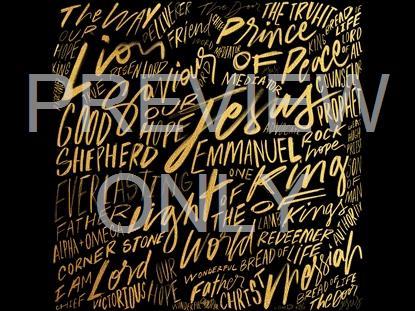 The WAY
DELIVERER
The Door
THE TRUTH
BREAD OF LIFE
OUR HOPE
Friend
Prince OF Peace
KING
LORD OF ALL
Lion
KING
RISEN LORD
MEDIATOR
Saviour
MEDIATOR
COUNSELOR
PROPHET
Jesus
PREVIEW ONLY
GOOD SHEPHERD
OUR HOPE
EMMANUEL
ROCK
hope
HIGH PRIEST
EVERLASTING FATHER
ONE
King OF Kings
SON OF MAN
light OF THE World
LAMB
AUTHORITY
ALPHA + OMEGA
CORNER STONE
REDEEMER
BREAD OF LIFE
I AM
Lord
OUR HOPE
WONDERFUL
Father
Messiah
CHIEF
VICTORIOUS
CHRIST
BREAD OF LIFE
WONDERFUL
The Door
JESUS